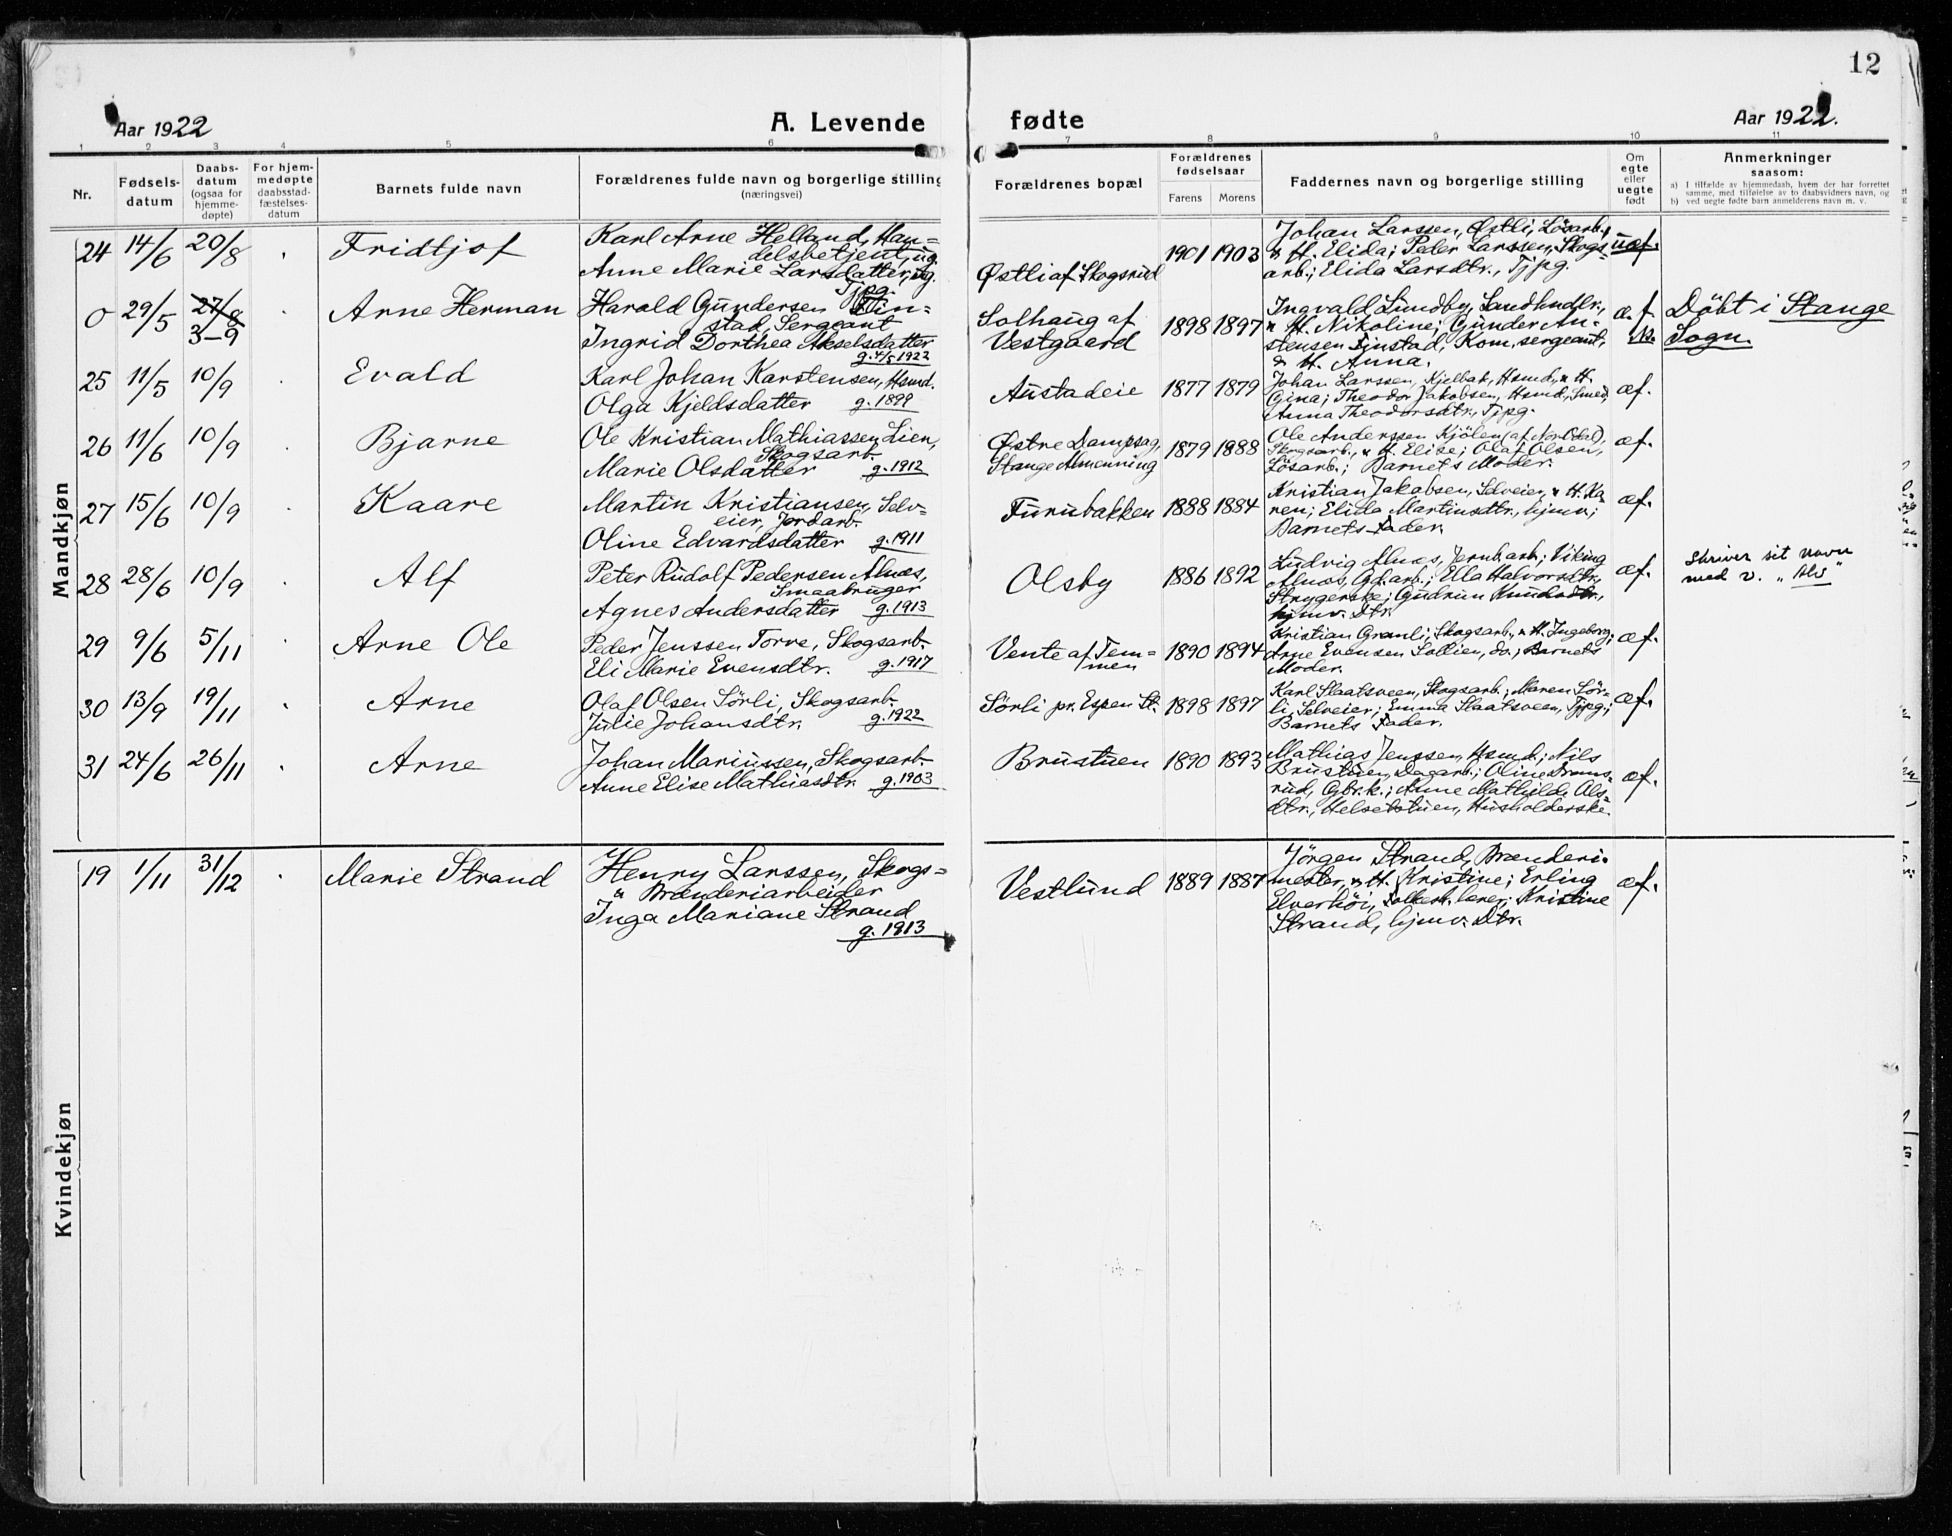 12
Aar 1922
A. Levende
fødte
Aar 1922.
1 2 3 4 5 6 7 8 9 10 11
Nr.
Fødsels-
datum
Daabs-
datum
(ogsaa for
hjemme-
døpte)
For hjem-
medøpte
daabsstad-
fæstelses-
datum
Barnets fulde navn
Forældrenes fulde navn og borgerlige stilling
(næringsvei)
Forældrenes bopæl
Forældrenes
fødselsaar
Farens Morens
Faddernes navn og borgerlige stilling
Om
egte
eller
uegte
født
Anmerkninger
saasom:
a) I tilfælde av hjemmedaab, hvem der har forrettet
samme, med tilføielse av to daabsvidners navn, og
b) ved uegte fødte barn anmelderens navn m. v.
Mandkjøn
24 14/6 20/8
Fridtjof
Karl Arne Helland, Han=
delsbetjent, ug.
Anne Marie Larsdatter, ug.
Tjpg.
Østli af Skogsrud
1901 1903
Johan Larssen, Østli, Lösarb.,
& H. Elida; Peder Larssen, Skogs-
arb.; Elida Larsdtr., Tjpg.
uæf.
0 29/5 27/8
3-9
Arne Herman
Harald Gundersen Tin=
stad, Sergeant
Ingrid Dorthea Akselsdatter
g. 4/5 1922
Solhaug af
Vestgaard
1898 1897
Ingvald Lundby, Landhndlr.,
& H. Nikoline; Gunder An-
stensen Finstad, Kom. sergeant,
& H. Anna.
æ.f
Döbt i Stange
Sogn.
25 11/5 10/9
Evald
Karl Johan Karstensen, Hsmd.
Olga Kjeldsdatter g. 1899
Austadeie
1877 1879
Johan Larssen, Kjelbak, Hsmd., & H.
Gina; Theodor Jakobsen, Hsmd., Smed,
Anna Theodorsdtr., Tjpg.
æf.
26 11/6 10/9
Bjarne
Ole Kristian Mathiassen Lien,
Skogsarb.
Marie Olsdatter g. 1912
Østre Dampsag,
Stange Almenning
1879 1888
Ole Anderssen Kjölen (af Nord Odal),
Skogsarb., & H. Elise; Olaf Olsen,
Lösarb.; Barnets Moder.
æf.
27 15/6 10/9
Kaare
Martin Kristiansen, Selv=
eier, Jordarb.
Oline Edvardsdatter g. 1911
Furubakken
1888 1884
Kristian Jakobsen, Selveier, & H. Ka-
ren; Elida Martinsdtr., hjmv.;
Barnets Fader.
æf.
28 28/6 10/9
Alf
Peter Rudolf Pedersen Alnæs,
Smaabruger
Agnes Andersdatter g. 1913
Olsby
1886 1892
Ludvig Alnæs, Jernb.arb.; Viking
Alnæs, Gd.arb.; Ella Halvorsdtr.,
Strygerske; Gudrun Knudsdtr.,
hjmv. Dtr.
æf.
Skriver sit navn
med v. "Alv"
29 9/6 5/11
Arne Ole
Peder Jenssen Torve, Skogsarb.
Eli Marie Evensdtr. g. 1917
Vente af Tem=
men
1890 1894
Kristian Granli, Skogsarb., & H. Ingeborg;
Arne Evensen Sollien, do.; Barnets
Moder.
æf.
30 13/9 19/11
Arne
Olaf Olsen Sörli, Skogsarb.
Julie Johansdtr. g. 1922
Sörli pr. Espen St.
1898 1897
Karl Slaatsveen, Skogsarb.; Maren Sör-
li, Selveier; Emma Slaatsveen, Tjpg.;
Barnets Fader.
æf.
31 24/6 26/11
Arne
Johan Mariussen, Skogsarb.
Anne Elise Mathiasdtr. g. 1903
Brustuen
1890 1893
Mathias Jenssen, Hsmd.; Nils
Brustuen, Dagarb.; Oline
rud, Gbr.k.; Anne Mathilde Ols-
dtr., Helsetstuen, Husholderske.
æf.
Kvindekjøn
19 1/11 31/12
Marie Strand
Henry Larssen, Skogs=
& Brænderiarbeider
Inga Mariane Strand
g. 1913
Vestlund
1889 1887
Jörgen Strand, Brænderi-
mester, & H. Kristine; Erling
Elverhöi, Folkesk.lærer; Kristine
Strand, hjmv. Dtr.
æf.